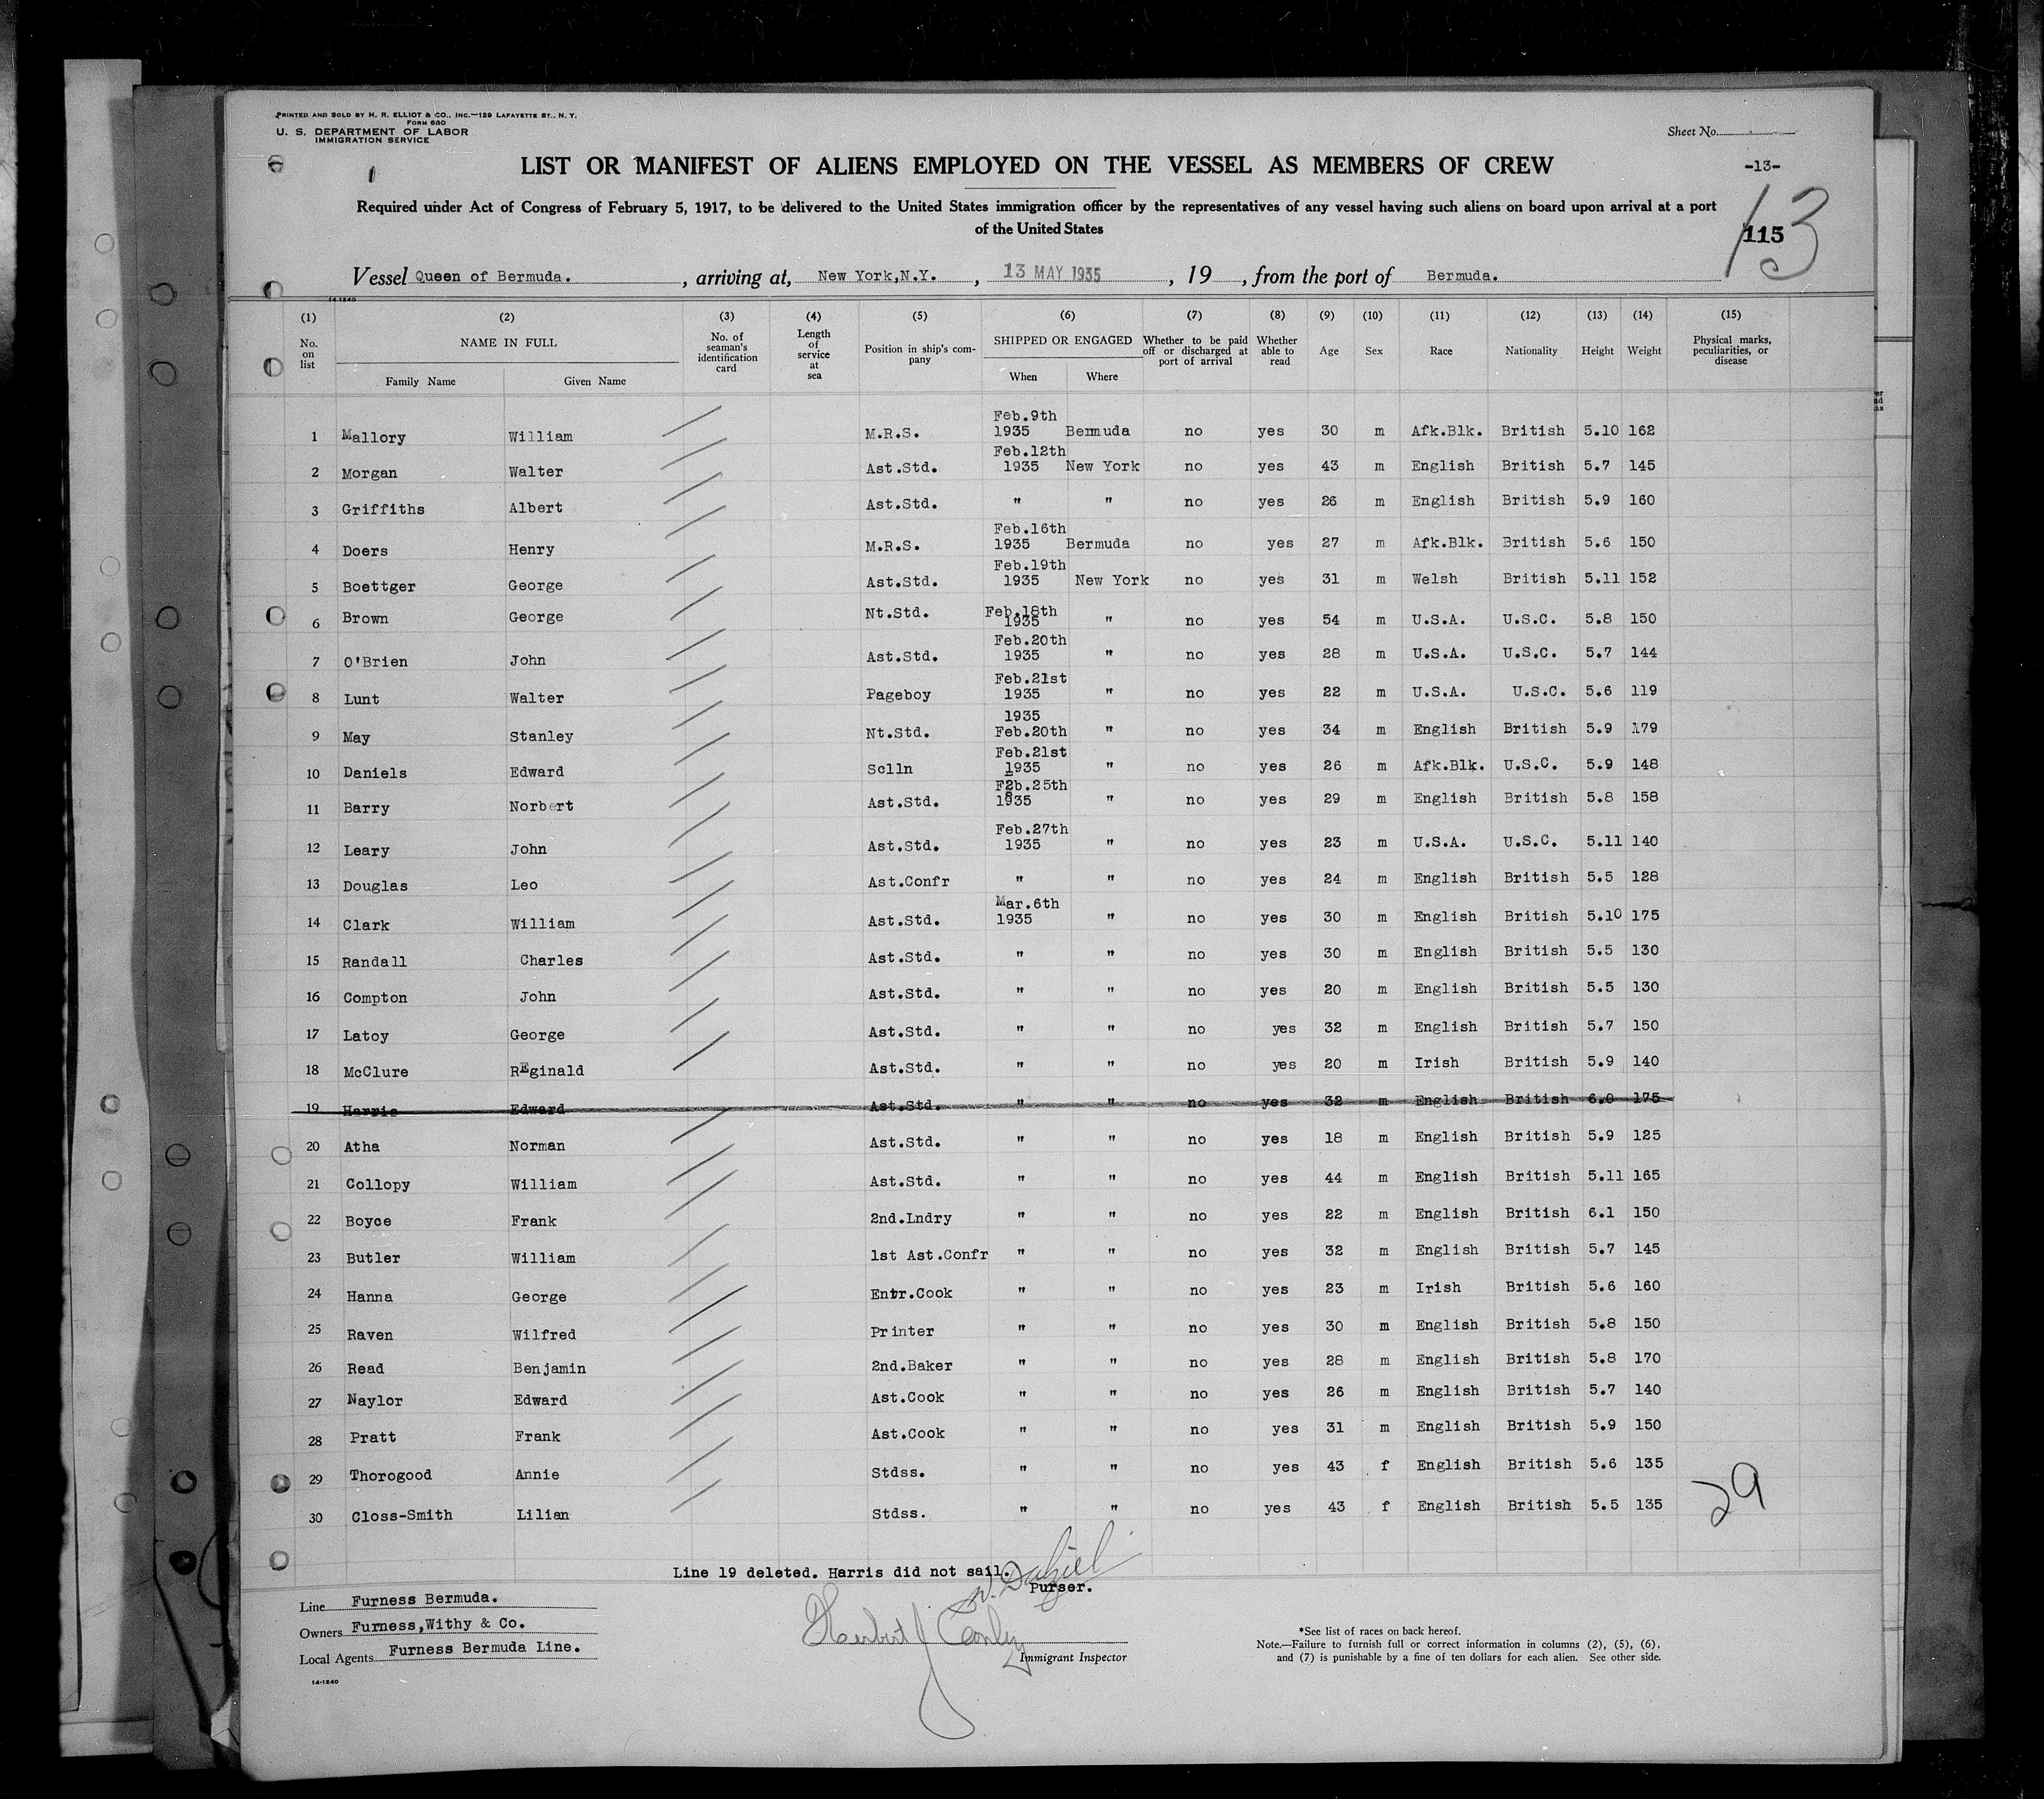 PRINTED AND SOLD BY H. R. ELLIOT & CO., INC.—129 LAFAYETTE ST., N. Y.
FORM 680
U. S. DEPARTMENT OF LABOR
IMMIGRATION SERVICE
Sheet No.
LIST OR MANIFEST OF ALIENS EMPLOYED ON THE VESSEL AS MEMBERS OF CREW
-13-
13
Required under Act of Congress of February 5, 1917, to be delivered to the United States immigration officer by the representatives of any vessel having such aliens on board upon arrival at a port
of the United States
115
Vessel Queen of Bermuda. , arriving at, New York,N.Y. , 13 MAY 1935 , 19 , from the port of Bermuda.
14-1240
(1) (2) (3) (4) (5) (6) (7) (8) (9) (10) (11) (12) (13) (14) (15)
No. on list NAME IN FULL Family Name Given Name No. of seaman's identification card Length of service at sea Position in ship's company SHIPPED OR ENGAGED When Where Whether to be paid off or discharged at port of arrival Whether able to read Age Sex Race Nationality Height Weight Physical marks, peculiarities, or disease
1 Mallory William M.R.S. Feb.9th 1935 Bermuda no yes 30 m Afk.Blk. British 5.10 162
2 Morgan Walter Ast.Std. Feb.12th 1935 New York no yes 43 m English British 5.7 145
3 Griffiths Albert Ast.Std. " " no yes 26 m English British 5.9 160
4 Doers Henry M.R.S. Feb.16th 1935 Bermuda no yes 27 m Afk.Blk. British 5.6 150
5 Boettger George Ast.Std. Feb.19th 1935 New York no yes 31 m Welsh British 5.11 152
6 Brown George Nt.Std. Feb.18th 1935 " no yes 54 m U.S.A. U.S.C. 5.8 150
7 O'Brien John Ast.Std. Feb.20th 1935 " no yes 28 m U.S.A. U.S.C. 5.7 144
8 Lunt Walter Pageboy Feb.21st 1935 " no yes 22 m U.S.A. U.S.C. 5.6 119
9 May Stanley Nt.Std. 1935 Feb.20th " no yes 34 m English British 5.9 179
10 Daniels Edward Sclln Feb.21st 1935 " no yes 26 m Afk.Blk. U.S.C. 5.9 148
11 Barry Norbert Ast.Std. Feb.25th 1935 " no yes 29 m English British 5.8 158
12 Leary John Ast.Std. Feb.27th 1935 " no yes 23 m U.S.A. U.S.C. 5.11 140
13 Douglas Leo Ast.Confr " " no yes 24 m English British 5.5 128
14 Clark William Ast.Std. Mar.6th 1935 " no yes 30 m English British 5.10 175
15 Randall Charles Ast.Std. " " no yes 30 m English British 5.5 130
16 Compton John Ast.Std. " " no yes 20 m English British 5.5 130
17 Latoy George Ast.Std. " " no yes 32 m English British 5.7 150
18 McClure REginald Ast.Std. " " no yes 20 m Irish British 5.9 140
19 Harris Edward Ast.Std. " " no yes 32 m English British 6.0 175
20 Atha Norman Ast.Std. " " no yes 18 m English British 5.9 125
21 Collopy William Ast.Std. " " no yes 44 m English British 5.11 165
22 Boyce Frank 2nd.Lndry " " no yes 22 m English British 6.1 150
23 Butler William 1st Ast.Confr " " no yes 32 m English British 5.7 145
24 Hanna George Entr.Cook " " no yes 23 m Irish British 5.6 160
25 Raven Wilfred Printer " " no yes 30 m English British 5.8 150
26 Read Benjamin 2nd.Baker " " no yes 28 m English British 5.8 170
27 Naylor Edward Ast.Cook " " no yes 26 m English British 5.7 140
28 Pratt Frank Ast.Cook " " no yes 31 m English British 5.9 150
29 Thorogood Annie Stdss. " " no yes 43 f English British 5.6 135
30 Closs-Smith Lilian Stdss. " " no yes 43 f English British 5.5 135
29
Line 19 deleted. Harris did not sail.
Purser.
Line Furness Bermuda.
Owners Furness,Withy & Co.
Local Agents Furness Bermuda Line.
Herbert J Conley
Immigrant Inspector
*See list of races on back hereof.
Note.—Failure to furnish full or correct information in columns (2), (5), (6),
and (7) is punishable by a fine of ten dollars for each alien. See other side.
14-1240